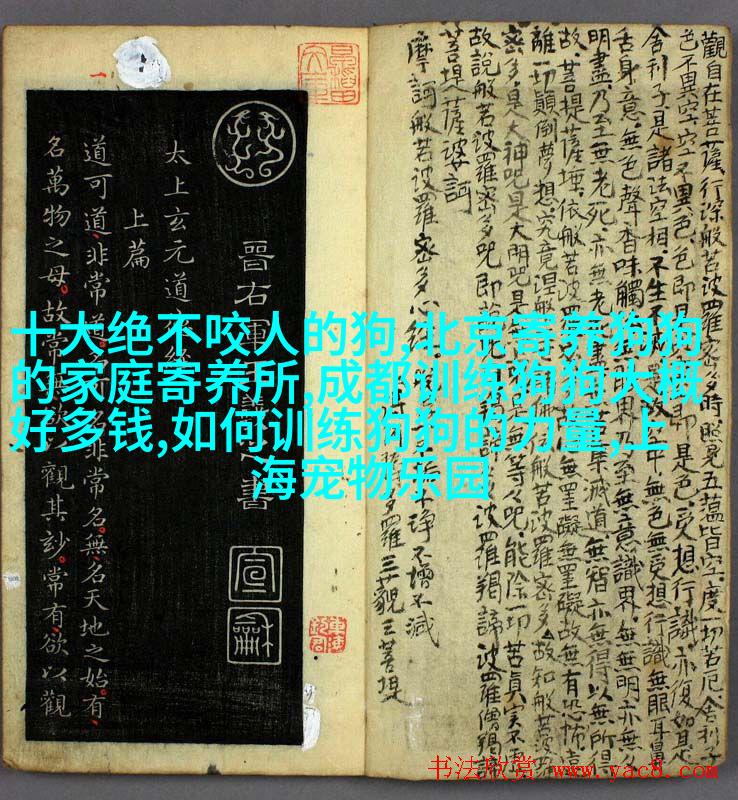 十大绝不咬人的狗,北京寄养狗狗
的家庭寄养所,成都训练狗狗大概
好多钱,如何训练狗狗的力量,上
海宠物乐园
觀自在菩薩行深般若波羅蜜多時照見五蘊皆空度一切苦厄舍利子
色不異空空不異色色即是空即是色受想行識亦復如是
舍利子是諸法空相不生不空中無色無受想行識無眼耳鼻
舌身意無色聲香味觸界乃至無意識界無無明亦無
明盡乃至無老死亦無老滅道無智亦無得以無所得
故菩提薩埵依般若波羅無罣礙無罣礙故無有恐怖遠
離一切顛倒夢想究竟涅槃羅密多故知般若波
密多是大神咒是大明咒是等々咒能除一切苦真實不虛
故說般若波羅密多咒即說波羅羯諦波羅僧羯諦
菩提薩婆訶
摩訶般若波羅密多心經
不增不減
羅三藐三菩提
晉右軍之書
宣
龢
太上玄元道
上篇
道可道非常名非常名無名天地之始有
名萬物之母故常無欲以觀其玅常有欲以觀
书法欣赏 www.yac8.com